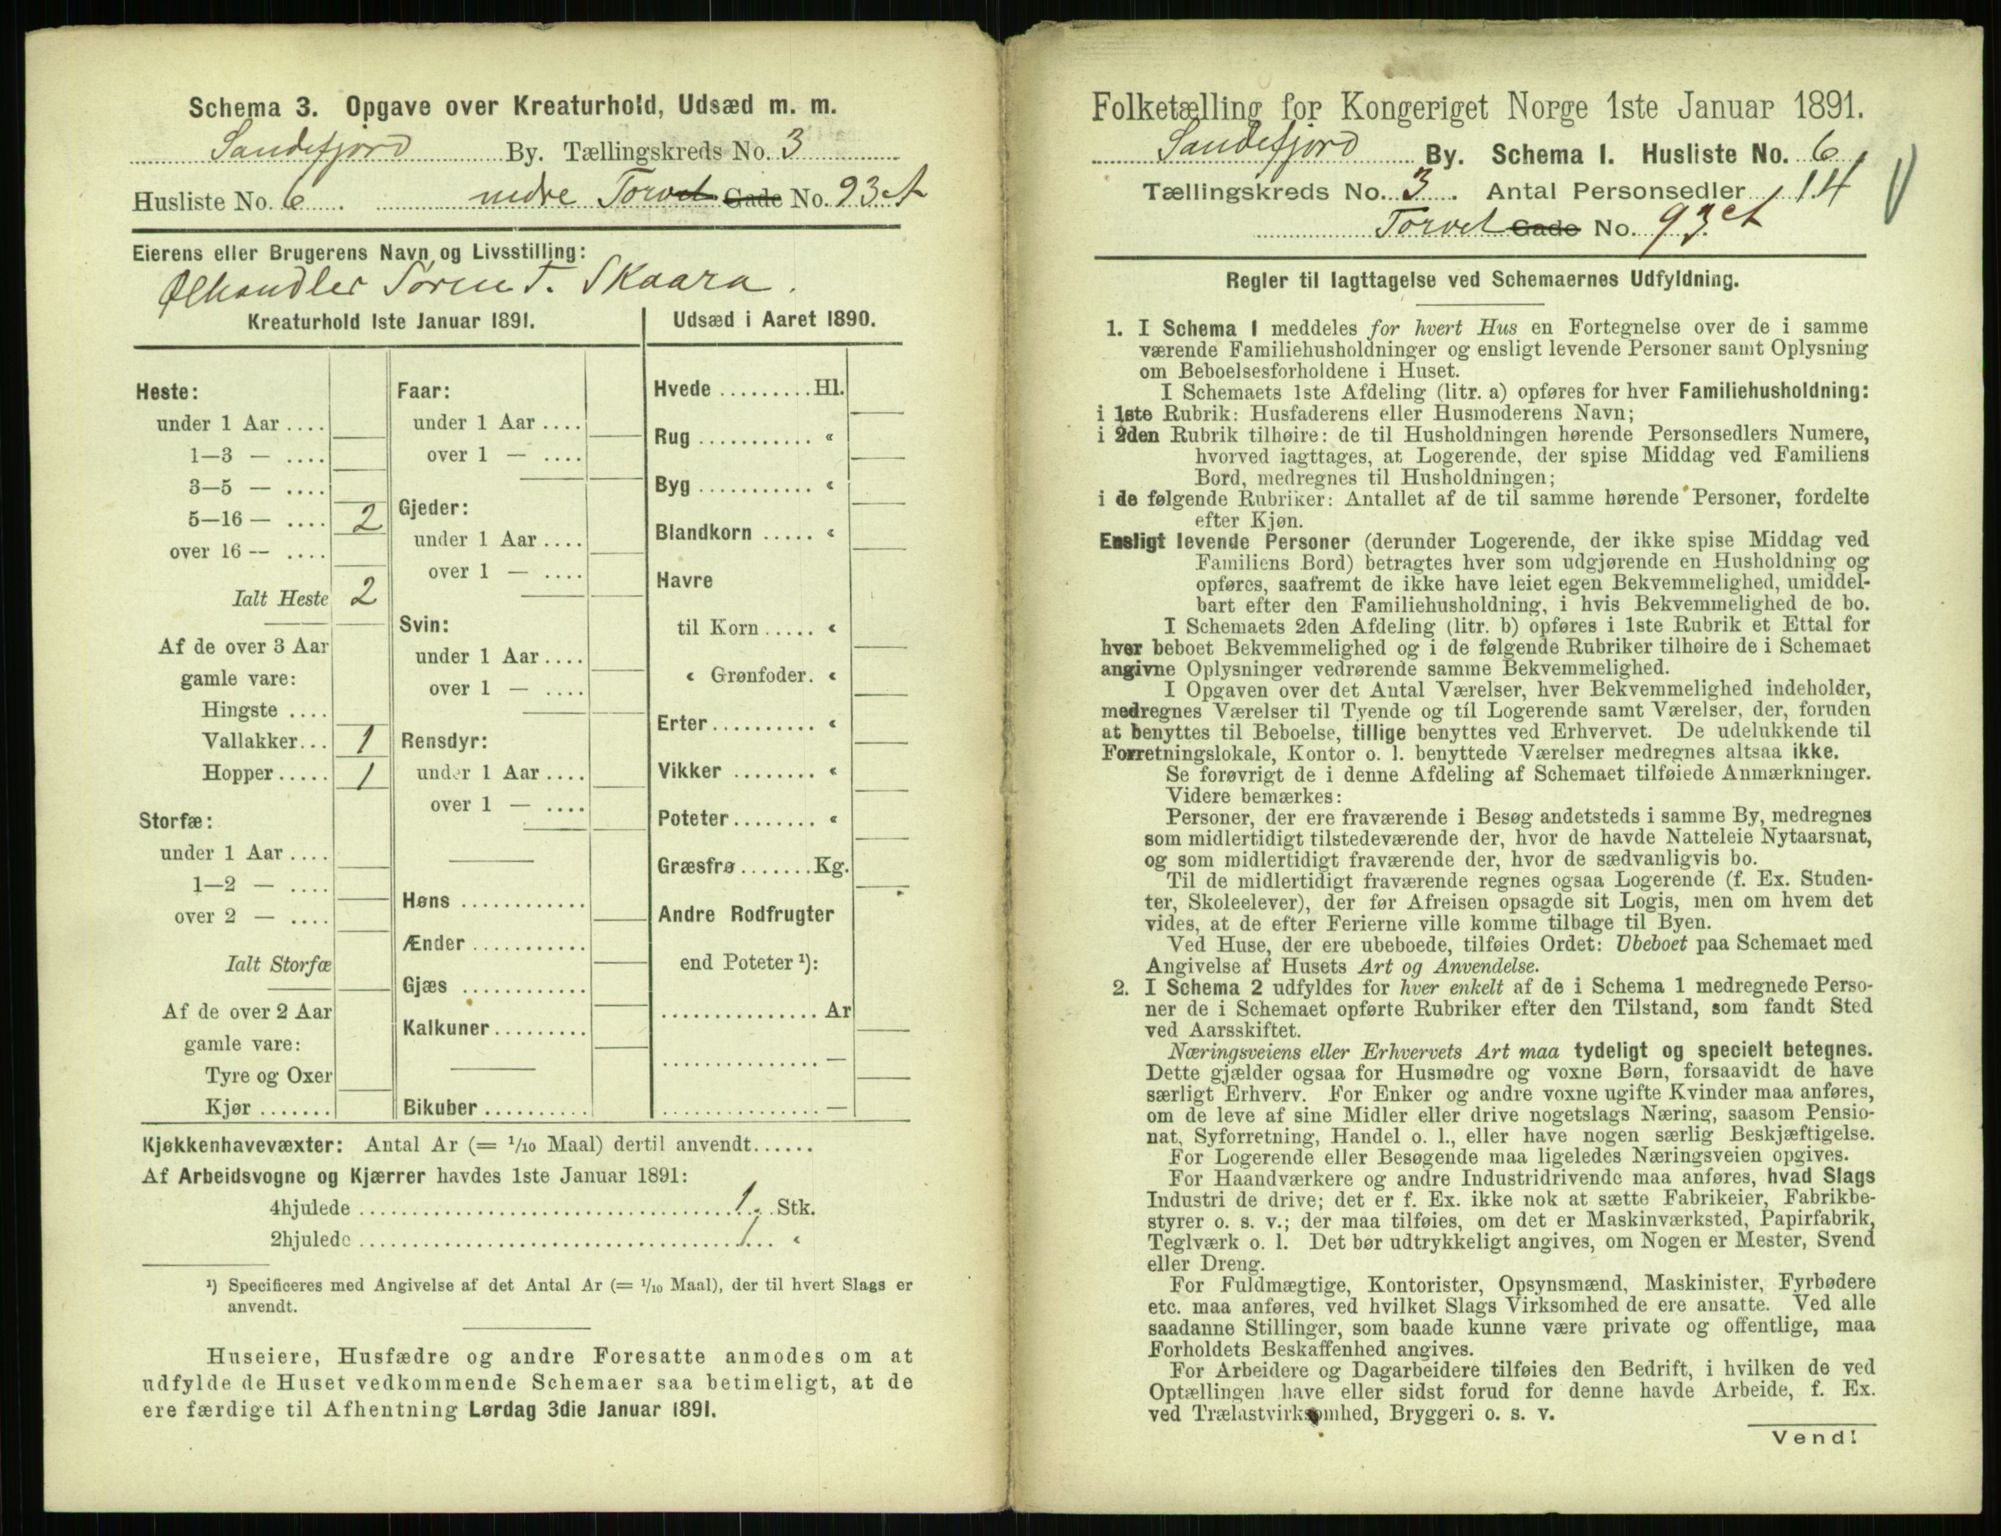 Schema 3. Opgave over Kreaturhold, Udsæd m. m.
Sandefjord By. Tællingskreds No. 3
Husliste No. 6 nedre Torvet Gade No. 93 A
Eierens eller Brugerens Navn og Livsstilling:
Ølhandler Søren F. Skaara.
Kreaturhold 1ste Januar 1891.
Heste:
under 1 Aar ....
1—3 — ....
3—5 — ....
5—16 — .... 2
over 16 — ....
Ialt Heste 2
Af de over 3 Aar
gamle vare:
Hingste ....
Vallakker... 1
Hopper..... 1
Storfæ:
under 1 Aar ....
1—2 — ....
over 2 — ....
Ialt Storfæ
Af de over 2 Aar
gamle vare:
Tyre og Oxer
Kjør .......
Faar:
under 1 Aar ....
over 1 — ....
Gjeder:
under 1 Aar ....
over 1 — ....
Svin:
under 1 Aar ....
over 1 — ....
Rensdyr:
under 1 Aar ....
over 1 — ....
Høns ............
Ænder ...........
Gjæs ............
Kalkuner.........
Bikuber ..........
Udsæd i Aaret 1890.
Hvede .........Hl.
Rug ........... «
Byg ........... «
Blandkorn ..... «
Havre
til Korn ..... «
« Grønfoder. «
Erter.......... «
Vikker ........ «
Poteter........ «
Græsfrø .......Kg.
Andre Rodfrugter
end Poteter ¹):
............... Ar
............... —
............... —
Kjøkkenhavevæxter: Antal Ar (= 1/10 Maal) dertil anvendt......
Af Arbeidsvogne og Kjærrer havdes 1ste Januar 1891:
4hjulede ........ 1 .. Stk.
2hjulede ........ 1 ... «
¹) Specificeres med Angivelse af det Antal Ar (= 1/10 Maal), der til hvert Slags er
anvendt.
Huseiere, Husfædre og andre Foresatte anmodes om at
udfylde de Huset vedkommende Schemaer saa betimeligt, at de
ere færdige til Afhentning Lørdag 3die Januar 1891.
Folketælling for Kongeriget Norge 1ste Januar 1891.
Sandefjord By. Schema 1. Husliste No. 6
Tællingskreds No. 3. Antal Personsedler 14
Torvet Gade No. 93 A
Regler til Iagttagelse ved Schemaernes Udfyldning.
1. I Schema 1 meddeles for hvert Hus en Fortegnelse over de i samme
værende Familiehusholdninger og ensligt levende Personer samt Oplysning
om Beboelsesforholdene i Huset.
I Schemaets 1ste Afdeling (litr. a) opføres for hver Familiehusholdning:
i 1ste Rubrik: Husfaderens eller Husmoderens Navn;
i 2den Rubrik tilhøire: de til Husholdningen hørende Personsedlers Numere,
hvorved iagttages, at Logerende, der spise Middag ved Familiens
Bord, medregnes til Husholdningen;
i de følgende Rubriker: Antallet af de til samme hørende Personer, fordelte
efter Kjøn.
Ensligt levende Personer (derunder Logerende, der ikke spise Middag ved
Familiens Bord) betragtes hver som udgjørende en Husholdning og
opføres, saafremt de ikke have leiet egen Bekvemmelighed, umiddel-
bart efter den Familiehusholdning, i hvis Bekvemmelighed de bo.
I Schemaets 2den Afdeling (litr. b) opføres i 1ste Rubrik et Ettal for
hver beboet Bekvemmelighed og i de følgende Rubriker tilhøire de i Schemaet
angivne Oplysninger vedrørende samme Bekvemmelighed.
I Opgaven over det Antal Værelser, hver Bekvemmelighed indeholder,
medregnes Værelser til Tyende og til Logerende samt Værelser, der, foruden
at benyttes til Beboelse, tillige benyttes ved Erhvervet. De udelukkende til
Forretningslokale, Kontor o. l. benyttede Værelser medregnes altsaa ikke.
Se forøvrigt de i denne Afdeling af Schemaet tilføiede Anmærkninger.
Videre bemærkes:
Personer, der ere fraværende i Besøg andetsteds i samme By, medregnes
som midlertidigt tilstedeværende der, hvor de havde Natteleie Nytaarsnat,
og som midlertidigt fraværende der, hvor de sædvanligvis bo.
Til de midlertidigt fraværende regnes ogsaa Logerende (f. Ex. Studen-
ter, Skoleelever), der før Afreisen opsagde sit Logis, men om hvem det
vides, at de efter Ferierne ville komme tilbage til Byen.
Ved Huse, der ere ubeboede, tilføies Ordet: Ubeboet paa Schemaet med
Angivelse af Husets Art og Anvendelse.
2. I Schema 2 udfyldes for hver enkelt af de i Schema 1 medregnede Perso-
ner de i Schemaet opførte Rubriker efter den Tilstand, som fandt Sted
ved Aarsskiftet.
Næringsveiens eller Erhvervets Art maa tydeligt og specielt betegnes.
Dette gjælder ogsaa for Husmødre og voxne Børn, forsaavidt de have
særligt Erhverv. For Enker og andre voxne ugifte Kvinder maa anføres,
om de leve af sine Midler eller drive nogetslags Næring, saasom Pensio-
nat, Syforretning, Handel o. l., eller have nogen særlig Beskjæftigelse.
For Logerende eller Besøgende maa ligeledes Næringsveien opgives.
For Haandværkere og andre Industridrivende maa anføres, hvad Slags
Industri de drive; det er f. Ex. ikke nok at sætte Fabrikeier, Fabrikbe-
styrer o. s. v.; der maa tilføies, om det er Maskinværksted, Papirfabrik,
Teglværk o. l. Det bør udtrykkeligt angives, om Nogen er Mester, Svend
eller Dreng.
For Fuldmægtige, Kontorister, Opsynsmænd, Maskinister, Fyrbødere
etc. maa anføres, ved hvilket Slags Virksomhed de ere ansatte. Ved alle
saadanne Stillinger, som baade kunne være private og offentlige, maa
Forholdets Beskaffenhed angives.
For Arbeidere og Dagarbeidere tilføies den Bedrift, i hvilken de ved
Optællingen have eller sidst forud for denne havde Arbeide, f. Ex.
ved Trælastvirksomhed, Bryggeri o. s. v.
Vend!